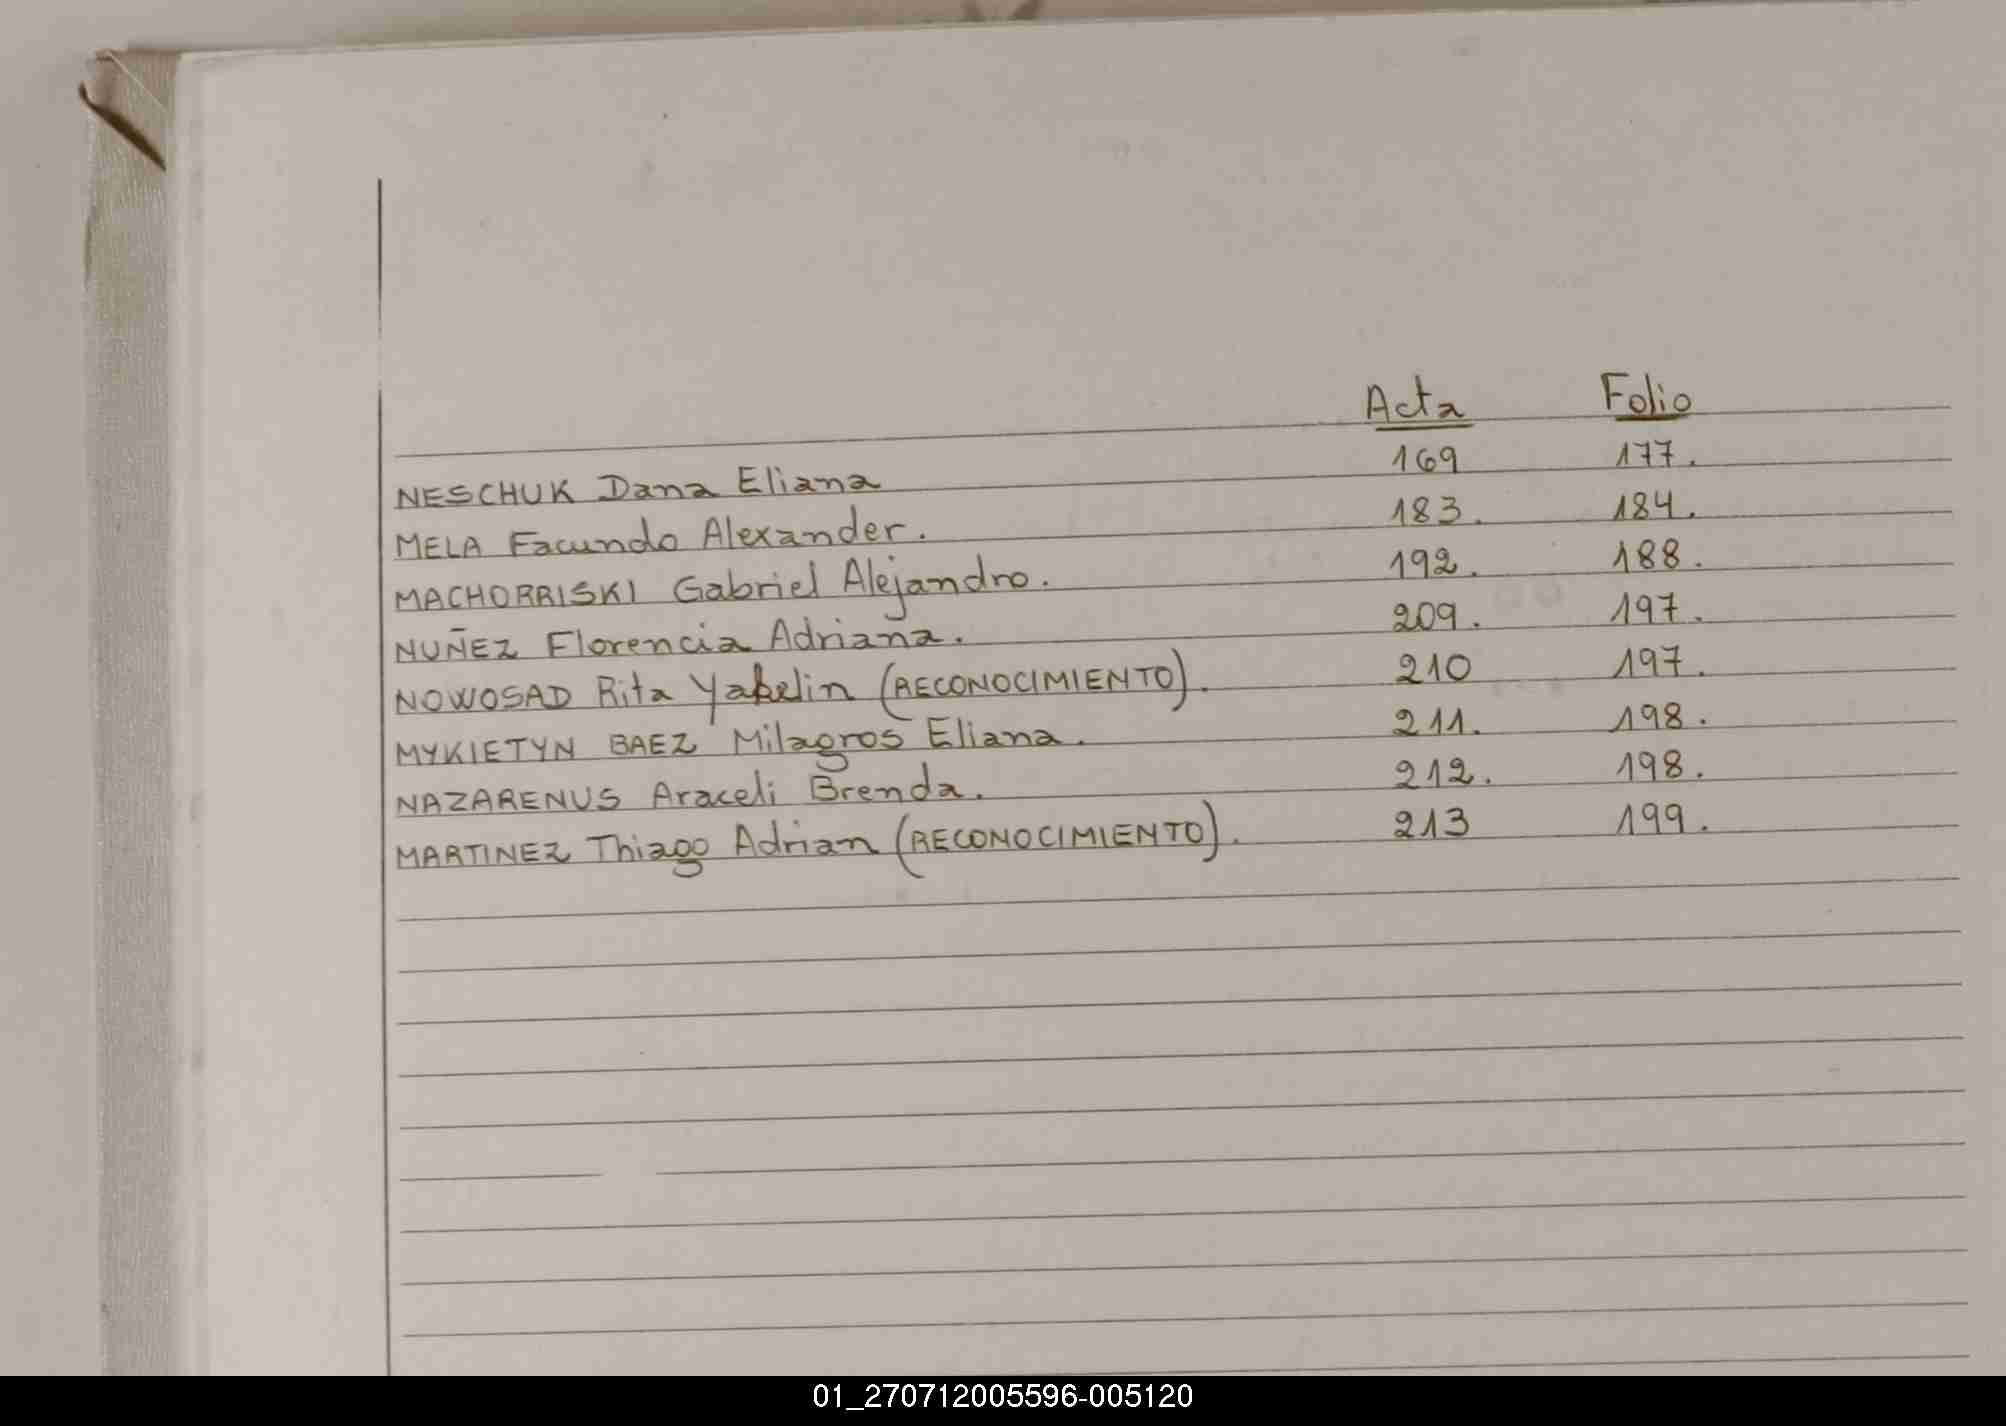 Acta Folio
NESCHUK Dana Eliana 169 177.
MELA Facundo Alexander. 183. 184.
MACHORRISKI Gabriel Alejandro. 192. 188.
NUÑEZ Florencia Adriana. 209. 197.
NOWOSAD Rita Yakelin (RECONOCIMIENTO). 210 197.
MYKIETYN BAEZ Milagros Eliana. 211. 198.
NAZARENUS Araceli Brenda. 212. 198.
MARTINEZ Thiago Adrian (RECONOCIMIENTO). 213 199.
01_270712005596-005120